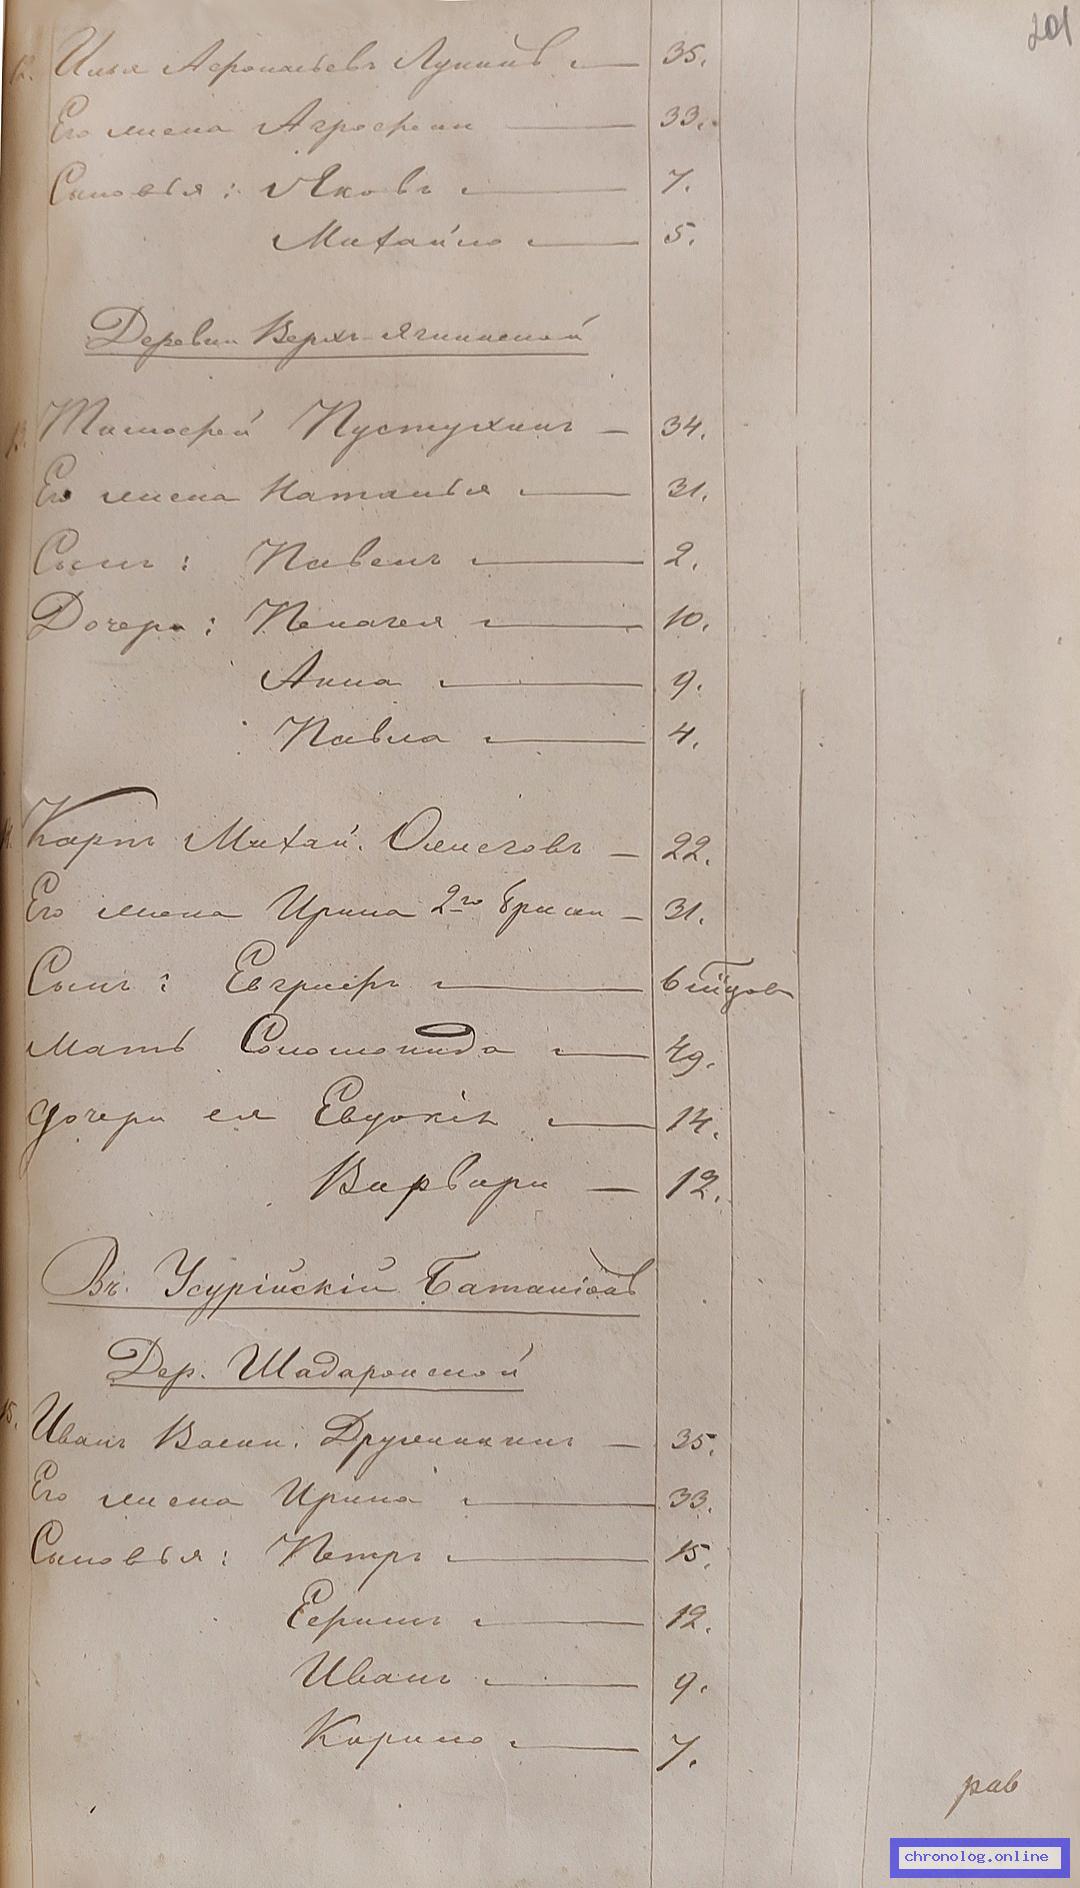 201
12. Илья Лупинъ 35.
Его жена Агрофена 33.
Сыновья: Яковъ 7.
Михайло 5.
Деревни Верхъ-Ягнинской
Тимофей Пустухинъ 34.
Его жена Наталья 31.
Сынъ: Павелъ 2.
Дочери: Пелагея 10.
Анна 9.
Павла 4.
Карпъ Михай. 22.
Его жена Ирина 2го брака 31.
Сынъ: Евграфъ
Мать Соломонида 49.
дочери ея Евдокія 14.
Варвара 12.
Въ Усурійскій Баталіонъ
Дер. Шадаронской
15. Иванъ Васил. Дружининъ 35.
Его жена Ирина 33.
Сыновья: Петръ 15.
Ефимъ 12.
Иванъ 9.
Карило 7.
рав
chronolog.online